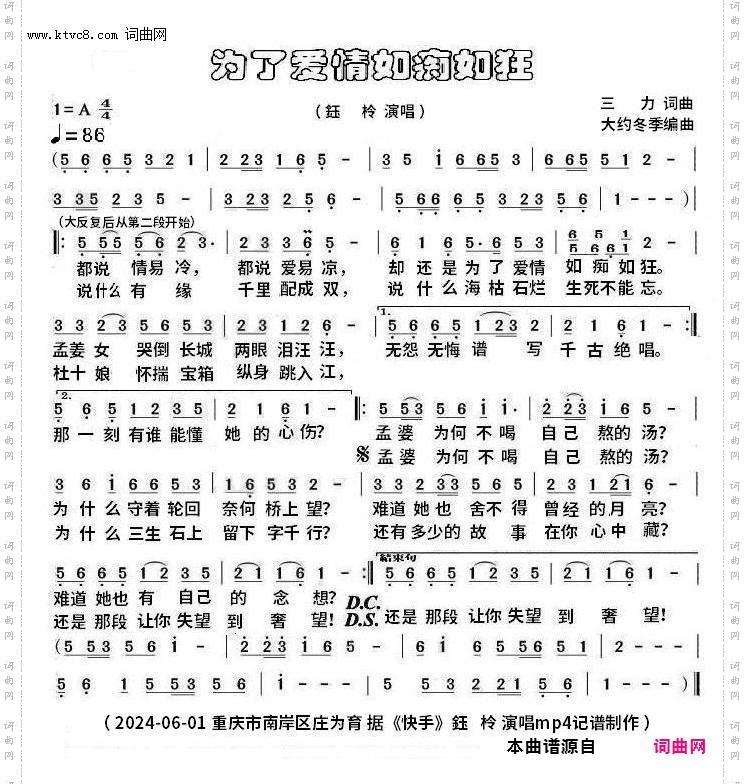 www.ktvc8.com 词曲网
为了爱情如痴如狂
1=A 4/4
（鈺 柃 演唱）
三 力 词曲
大约冬季编曲
♩=86
(5 6 6 5 3 2 1 | 2 2 3 5 1 6 - | 3 5 i 6 6 5 3 | 6 6 5 5 1 2 -
3 3 5 2 3 5 | 3 2 3 2 5 6 - | 5 6 6 6 5 6 5 | 1 - - -)
(大反复后从第二段开始)
‖: 5 5 5 5 6 2 3· | 3 2 3 3 5 6 - | 6 1 6 5· 6 5 3 | 2 -
都说 情易 冷， 都说 爱易 凉， 却 还 是 为 了 爱情 如 痴 如 狂。
说什么 有 缘 千里 配成 双， 说 什 么 海 枯 石烂 生死 不能 忘。
3 3 2 3 5 6 5 | 2 3 1 2 2 - | 1. 5 6 6 5 1 2 3 | 2 1 6 - :‖
孟姜 女 哭倒 长城 两眼 泪汪 汪， 无怨 无悔 谱 写 千 古 绝 唱。
杜十 娘 怀揣 宝箱 纵身 跳入 江，
2.
5 6 5 1 2 3 5 | 2 1 6 1 - ‖: 5 5 5 3 5 6 i i· | 2 2 3 2 i -
那 一 刻 有 谁 能 懂 她 的 心 伤？ 孟 婆 为 何 不 喝 自 己 熬 的 汤？
𝄋 孟 婆 为 何 不 喝 自 己 熬 的 汤？
3 6 i 6 6 5 3 | 1 6 5 3 - | 2 3 2 3 3 5 | 2 3 1 2 1 6 -
为 什 么 守着 轮回 奈何 桥上 望？ 难道 她也 舍 不得 曾经 的 月 亮？
为 什 么 三生 石上 留下 字千 行？ 还有 多少 的 故 事 在你 心中 藏？
結束句
5 6 6 5 1 2 3 5 | 2 1 1 6 1 - :‖ 5 6 6 5 1 2 3 5 | 2 1 1 6 1 -
难道 她也 有 自己 的 念 想？ D.C.
还是 那段 让你 失望 到 奢 望！ D.S. 还是 那段 让你 失望 到 奢 望！
(5 6 5 3 5 6 i - | 2 2 3 i 6 - | i 6 6 5 3 | 2 3 3 5 3 -
5 6 1 5 2 - | 2 2 3 2 5 6 - | 5 6 1 6 5 | 1 - - -)
（2024-06-01 重庆市南岸区庄为育 据《快手》鈺 柃 演唱mp4记谱制作）
本曲谱源自 词曲网